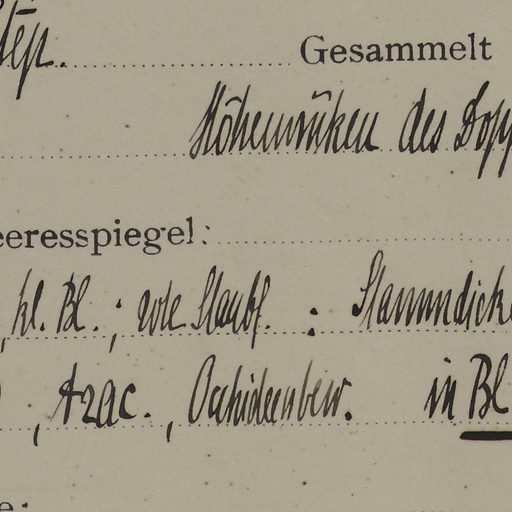 Gesammelt
Höhenrücken des Dopp
eeresspiegel:
, kl. Bl. ; rote Staubf. : Stammdicke
, Arac. , Orchideenbew. in Bl